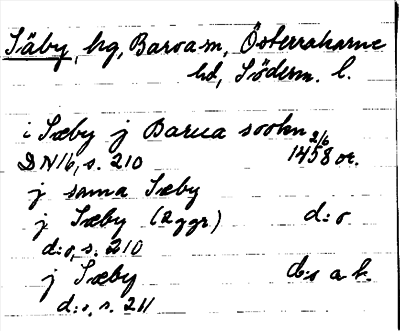 Säby, hg, Barva sn, Österrekarne
hd, Söderm. l.
i Sæby j Barua sookn 2/6
DN 16, s. 210 1458 or.
j sama Sæby
j Sæby (2 ggr) d:o
d:o, s. 210
j Sæby d:s a k.
d:o, s. 211